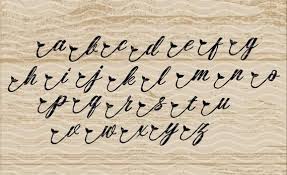 a b c d e f g
h i j k l m n o
p q r s t u
v w x y z